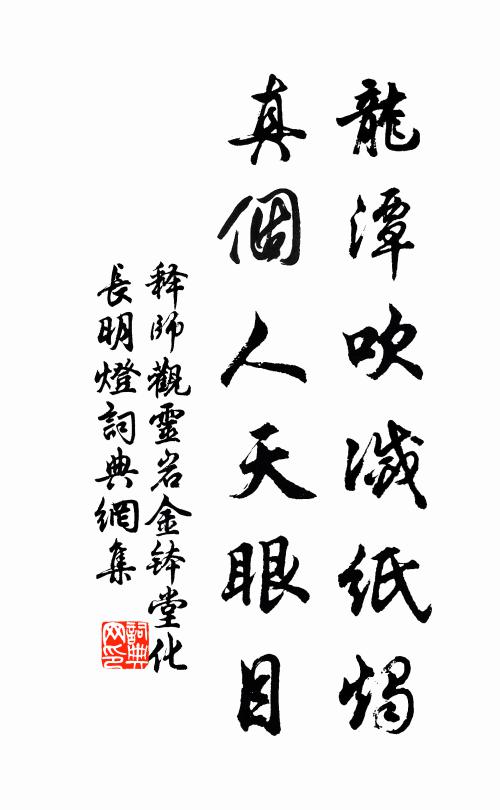 龍潭吹滅紙燭
真個人天眼目
释師觀靈岩金鉢堂化
長明燈詞典網集
詞典
网印